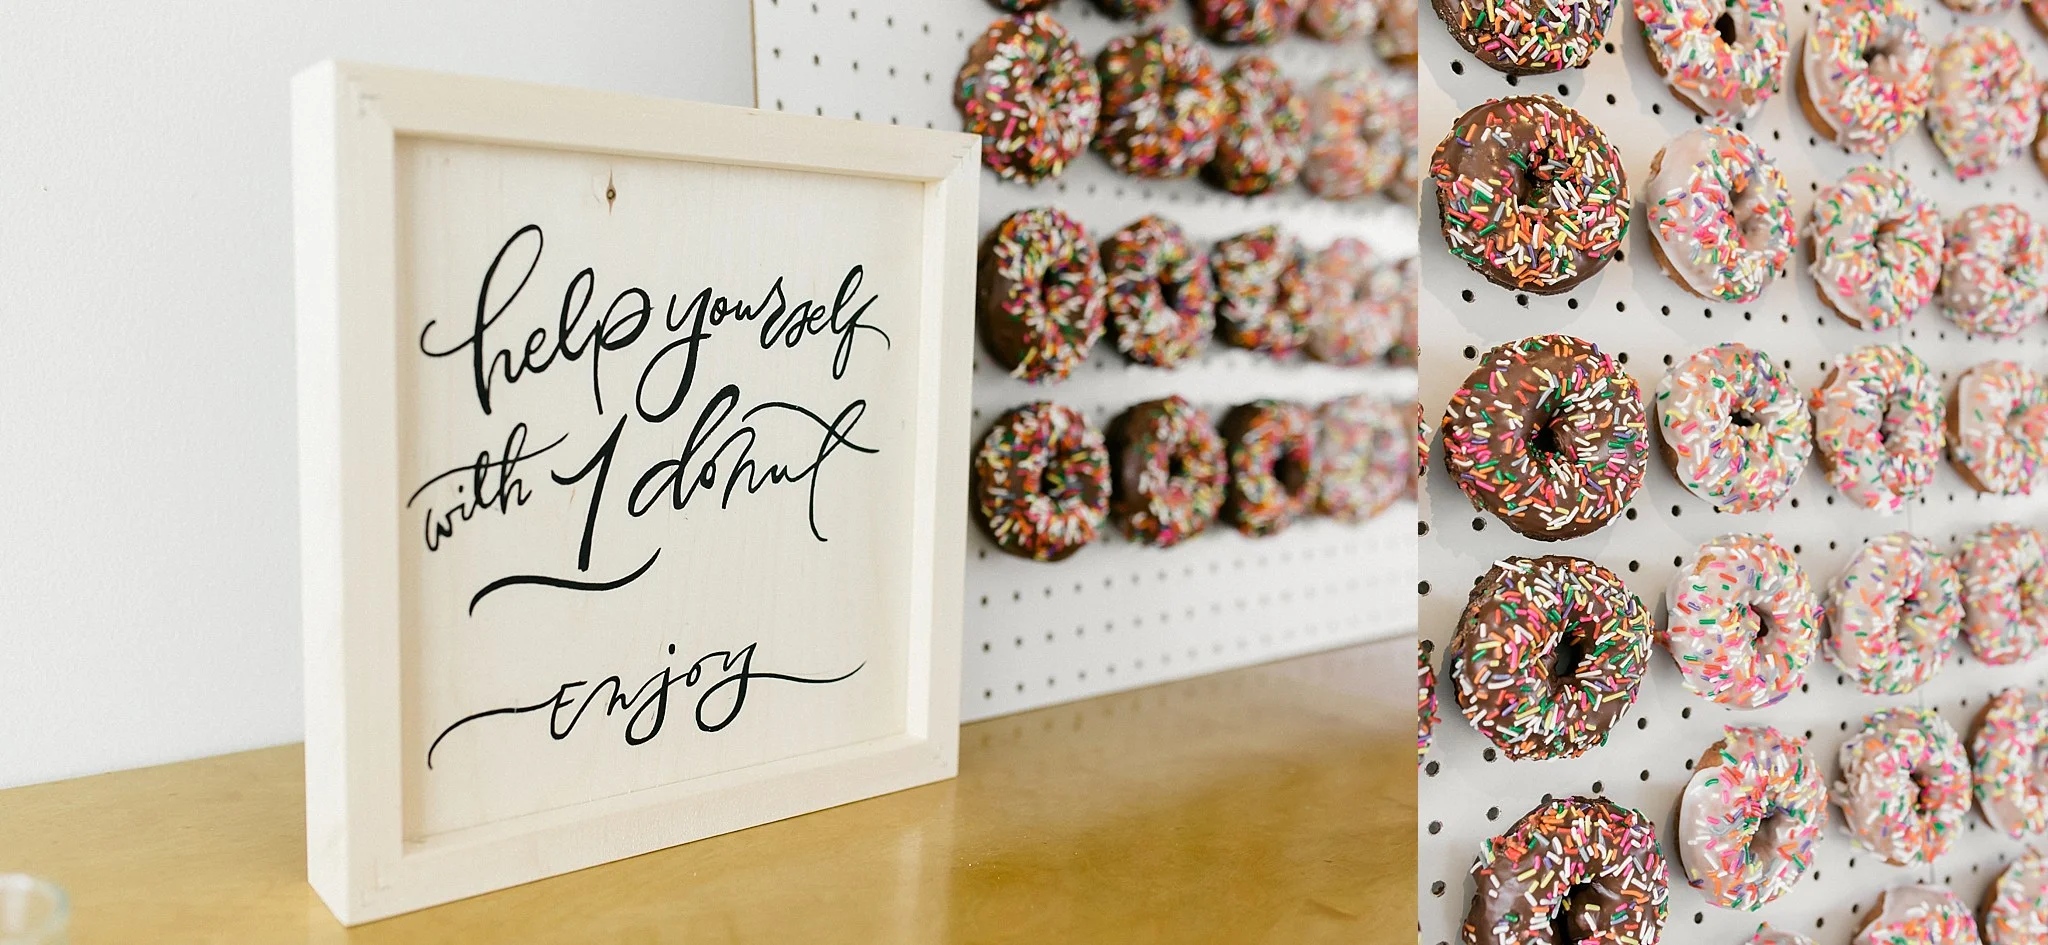 help yourself
with 1 donut
Enjoy